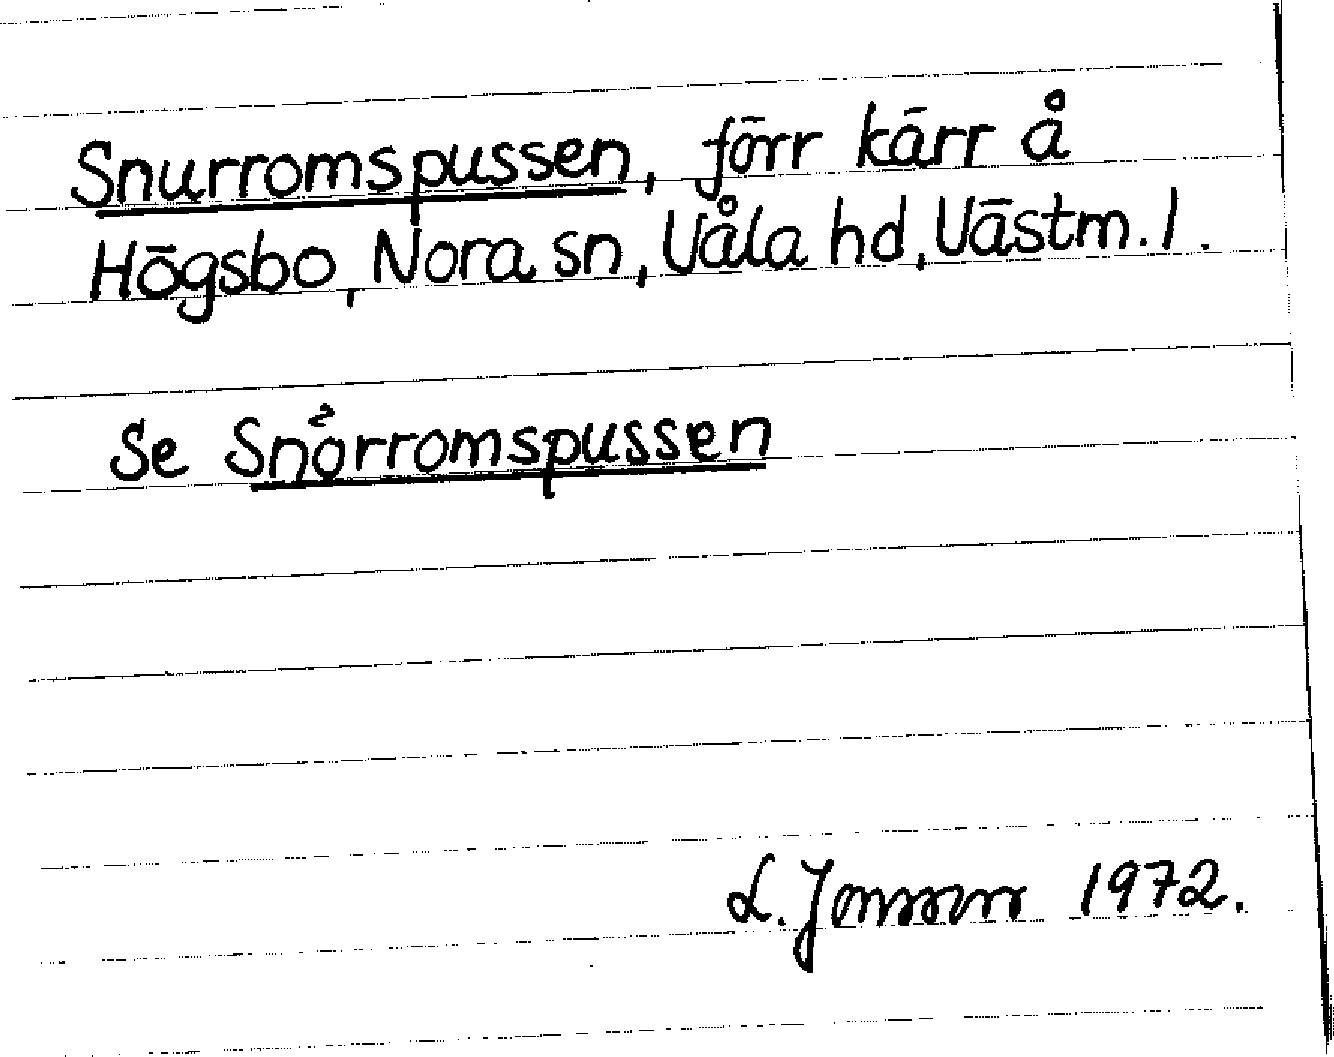 Snurromspussen, förr kärr å
Högsbo, Nora sn, Våla hd, Västm. l.
Se Snörromspussen
L. Jonsson 1972.